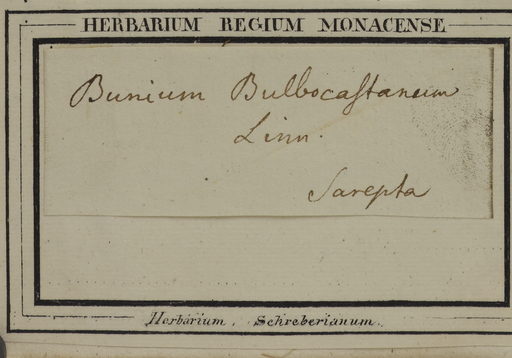 HERBARIUM REGIUM MONACENSE
Bunium Bulbocaſtanum
Linn.
Sarepta
Herbarium. Schreberianum.